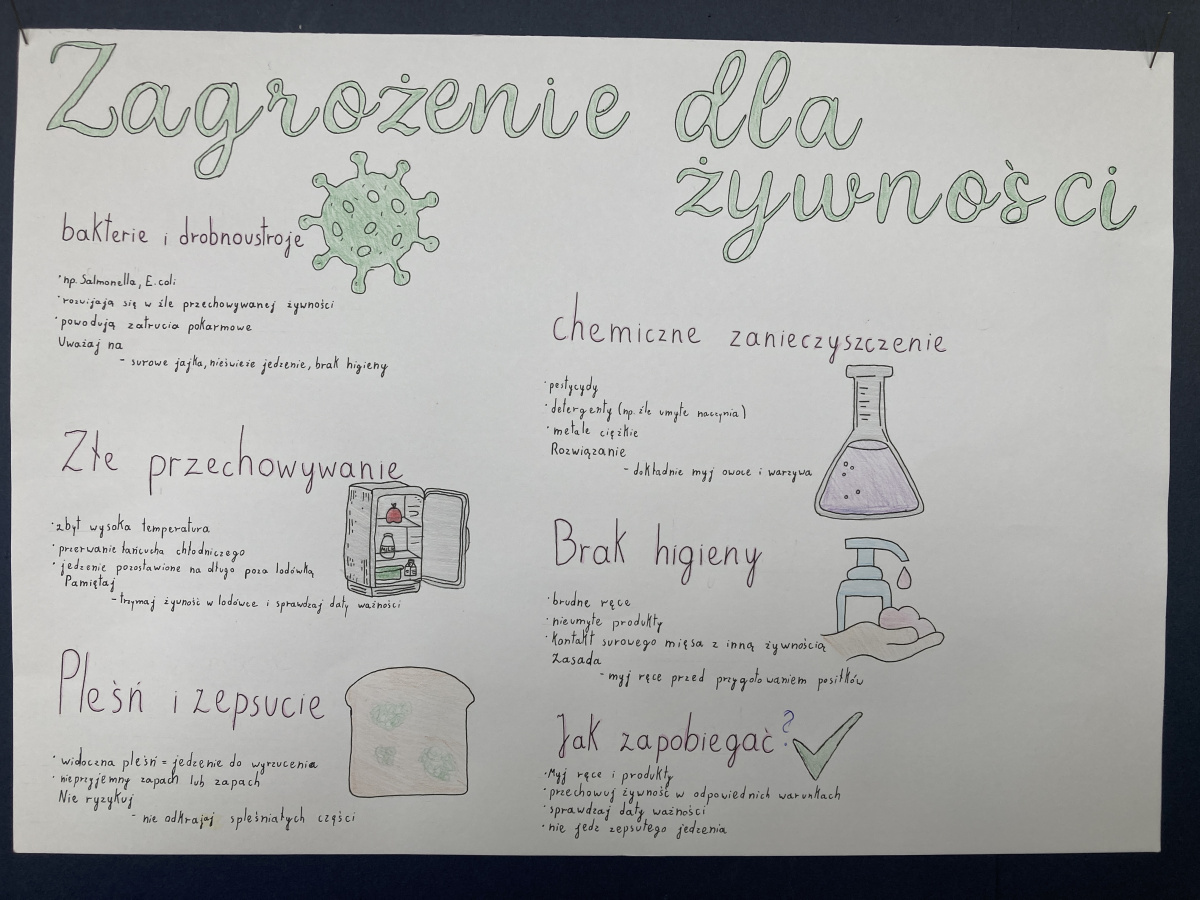 Zagrożenie dla
żywności
bakterie i drobnoustroje
•np. Salmonella, E. coli
•rozwijają się w źle przechowywanej żywności
•powodują zatrucia pokarmowe
Uważaj na
- surowe jajka, nieświeże jedzenie, brak higieny
Złe przechowywanie
•zbyt wysoka temperatura
•przerwanie łańcucha chłodniczego
•jedzenie pozostawione na długo poza lodówką
Pamiętaj
- trzymaj żywność w lodówce i sprawdzaj daty ważności
MILK
Pleśń i zepsucie
•widoczna pleśń = jedzenie do wyrzucenia
•nieprzyjemny zapach lub zapach
Nie ryzykuj
- nie odkrajaj spleśniałych części
chemiczne zanieczyszczenie
•pestycydy
•detergenty (np. źle umyte naczynia)
•metale ciężkie
Rozwiązanie
- dokładnie myj owoce i warzywa
Brak higieny
•brudne ręce
•nieumyte produkty
•kontakt surowego mięsa z inną żywnością
Zasada
- myj ręce przed przygotowaniem posiłków
Jak zapobiegać?
•Myj ręce i produkty
•przechowuj żywność w odpowiednich warunkach
•sprawdzaj daty ważności
•nie jedz zepsutego jedzenia